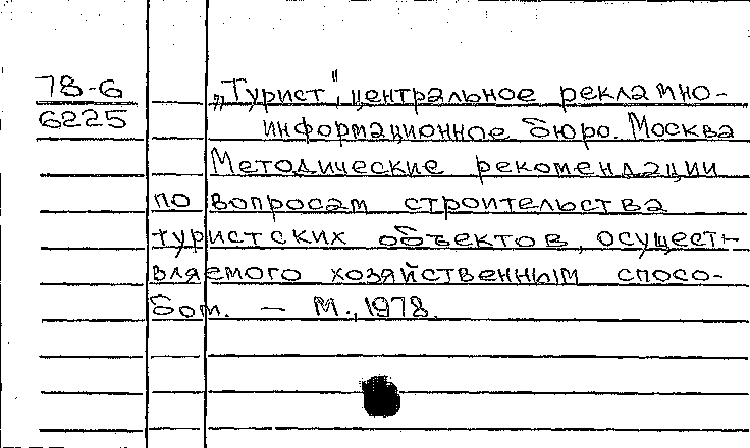 78-6
6225
„Турист", центральное рекламно-
информационное бюро. Москва
Методические рекомендации
по вопросам строительства
туристских объектов, осущест-
вляемого хозяйственным спосо-
бом. — М., 1978.